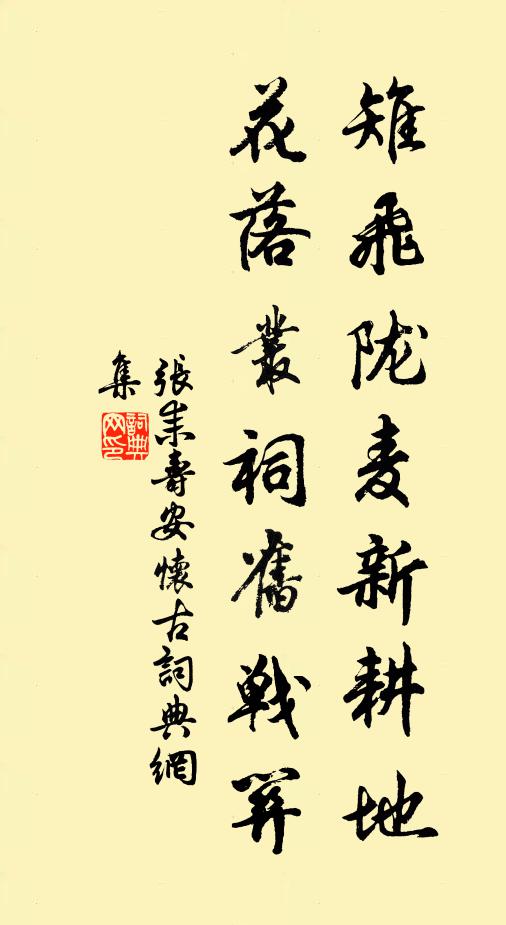 雉飛陇麦新耕地
花落叢祠舊戦
張耒壽安懷古詞典網
集
詞典网印